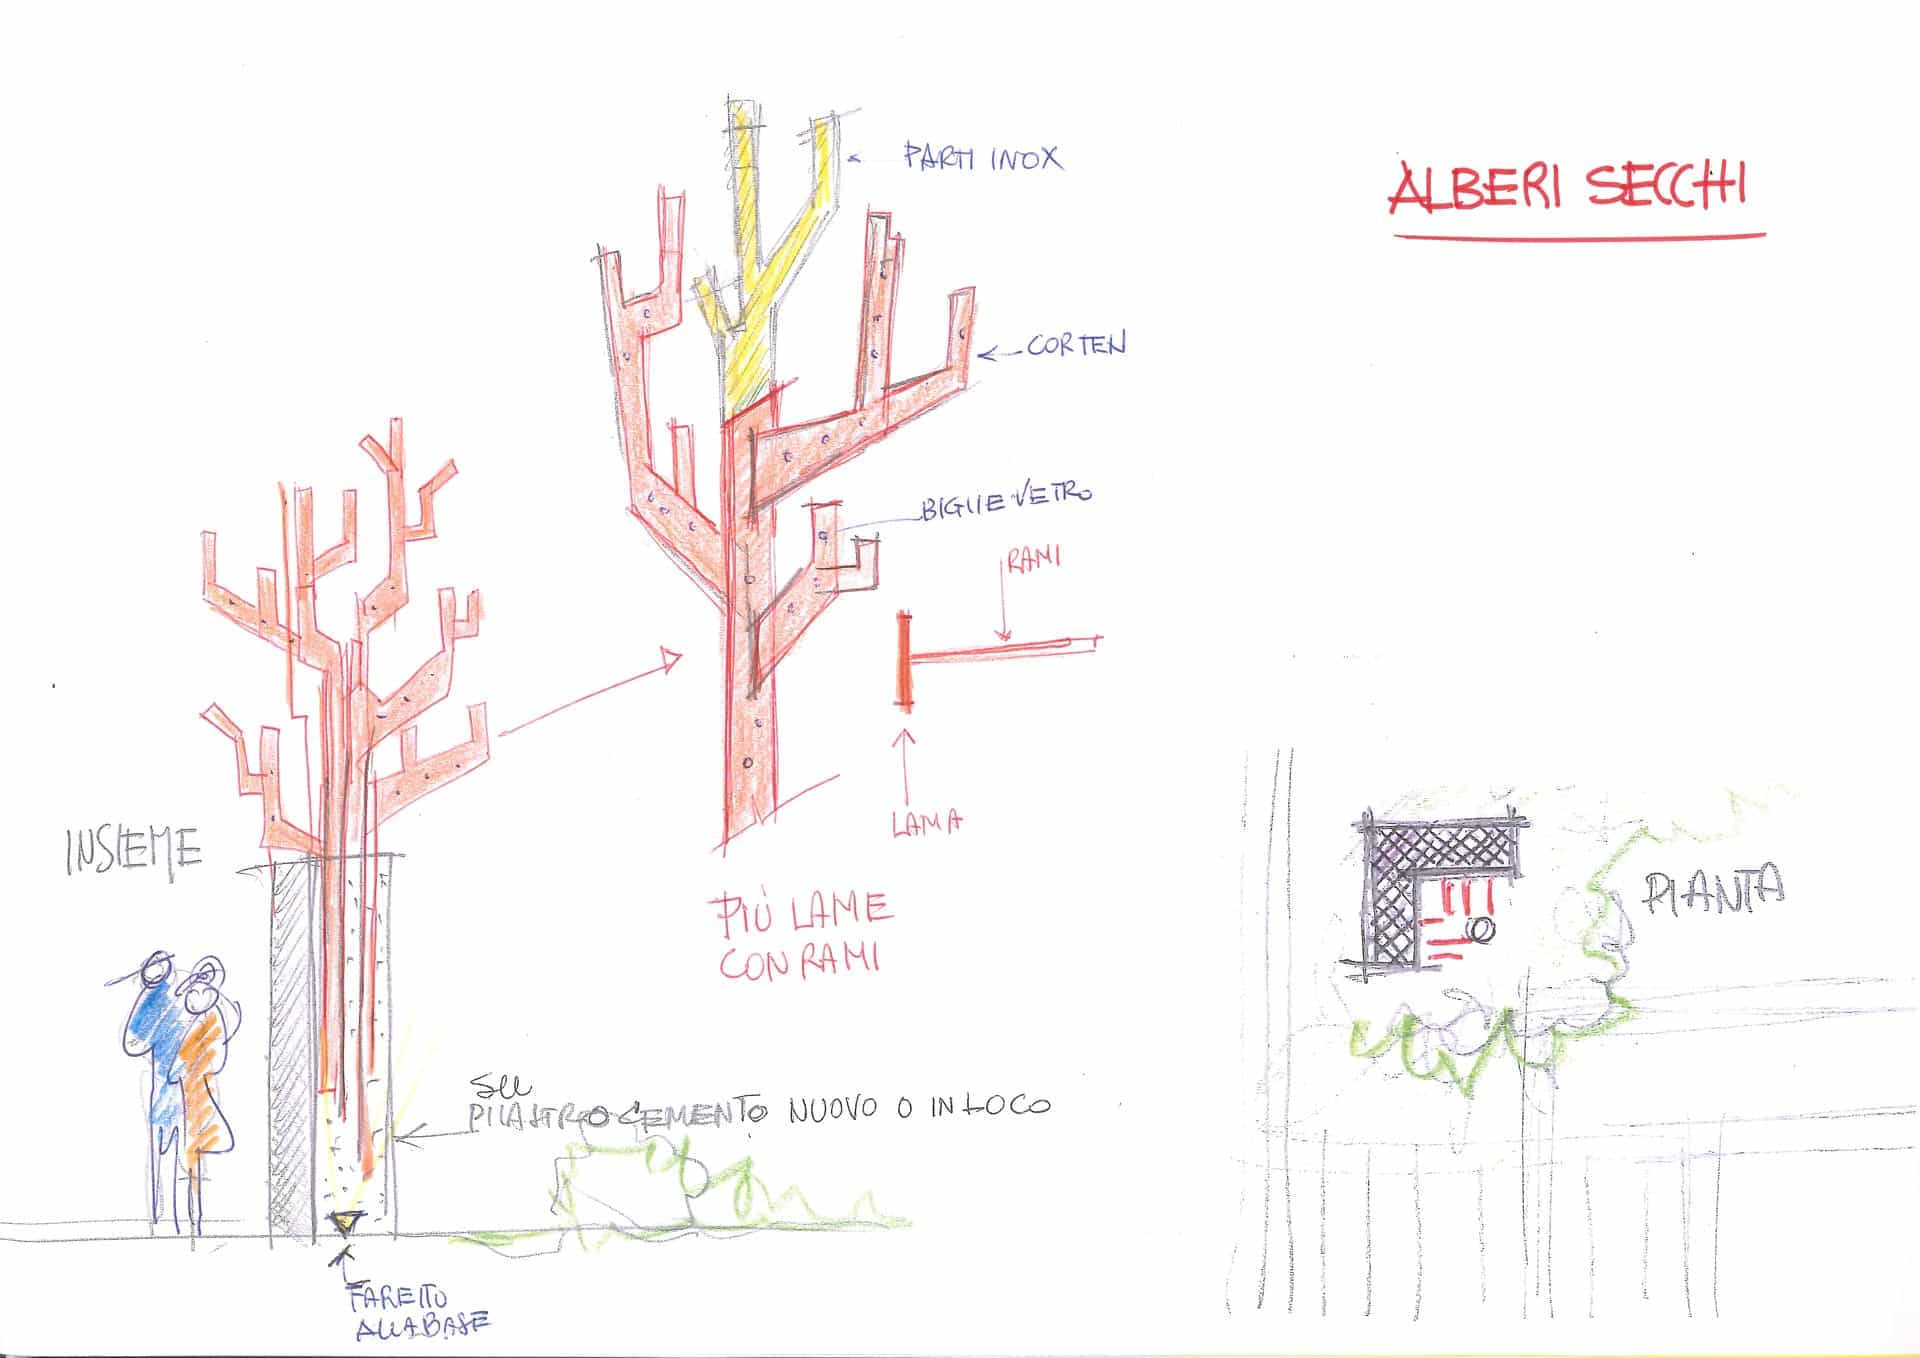 ALBERI SECCHI
PARTI INOX
CORTEN
BIGLIE VETRO
RAMI
LAMA
PIÙ LAME
CON RAMI
INSIEME
SU
PILASTRO CEMENTO NUOVO O IN LOCO
FARETTO
ALLA BASE
PIANTA